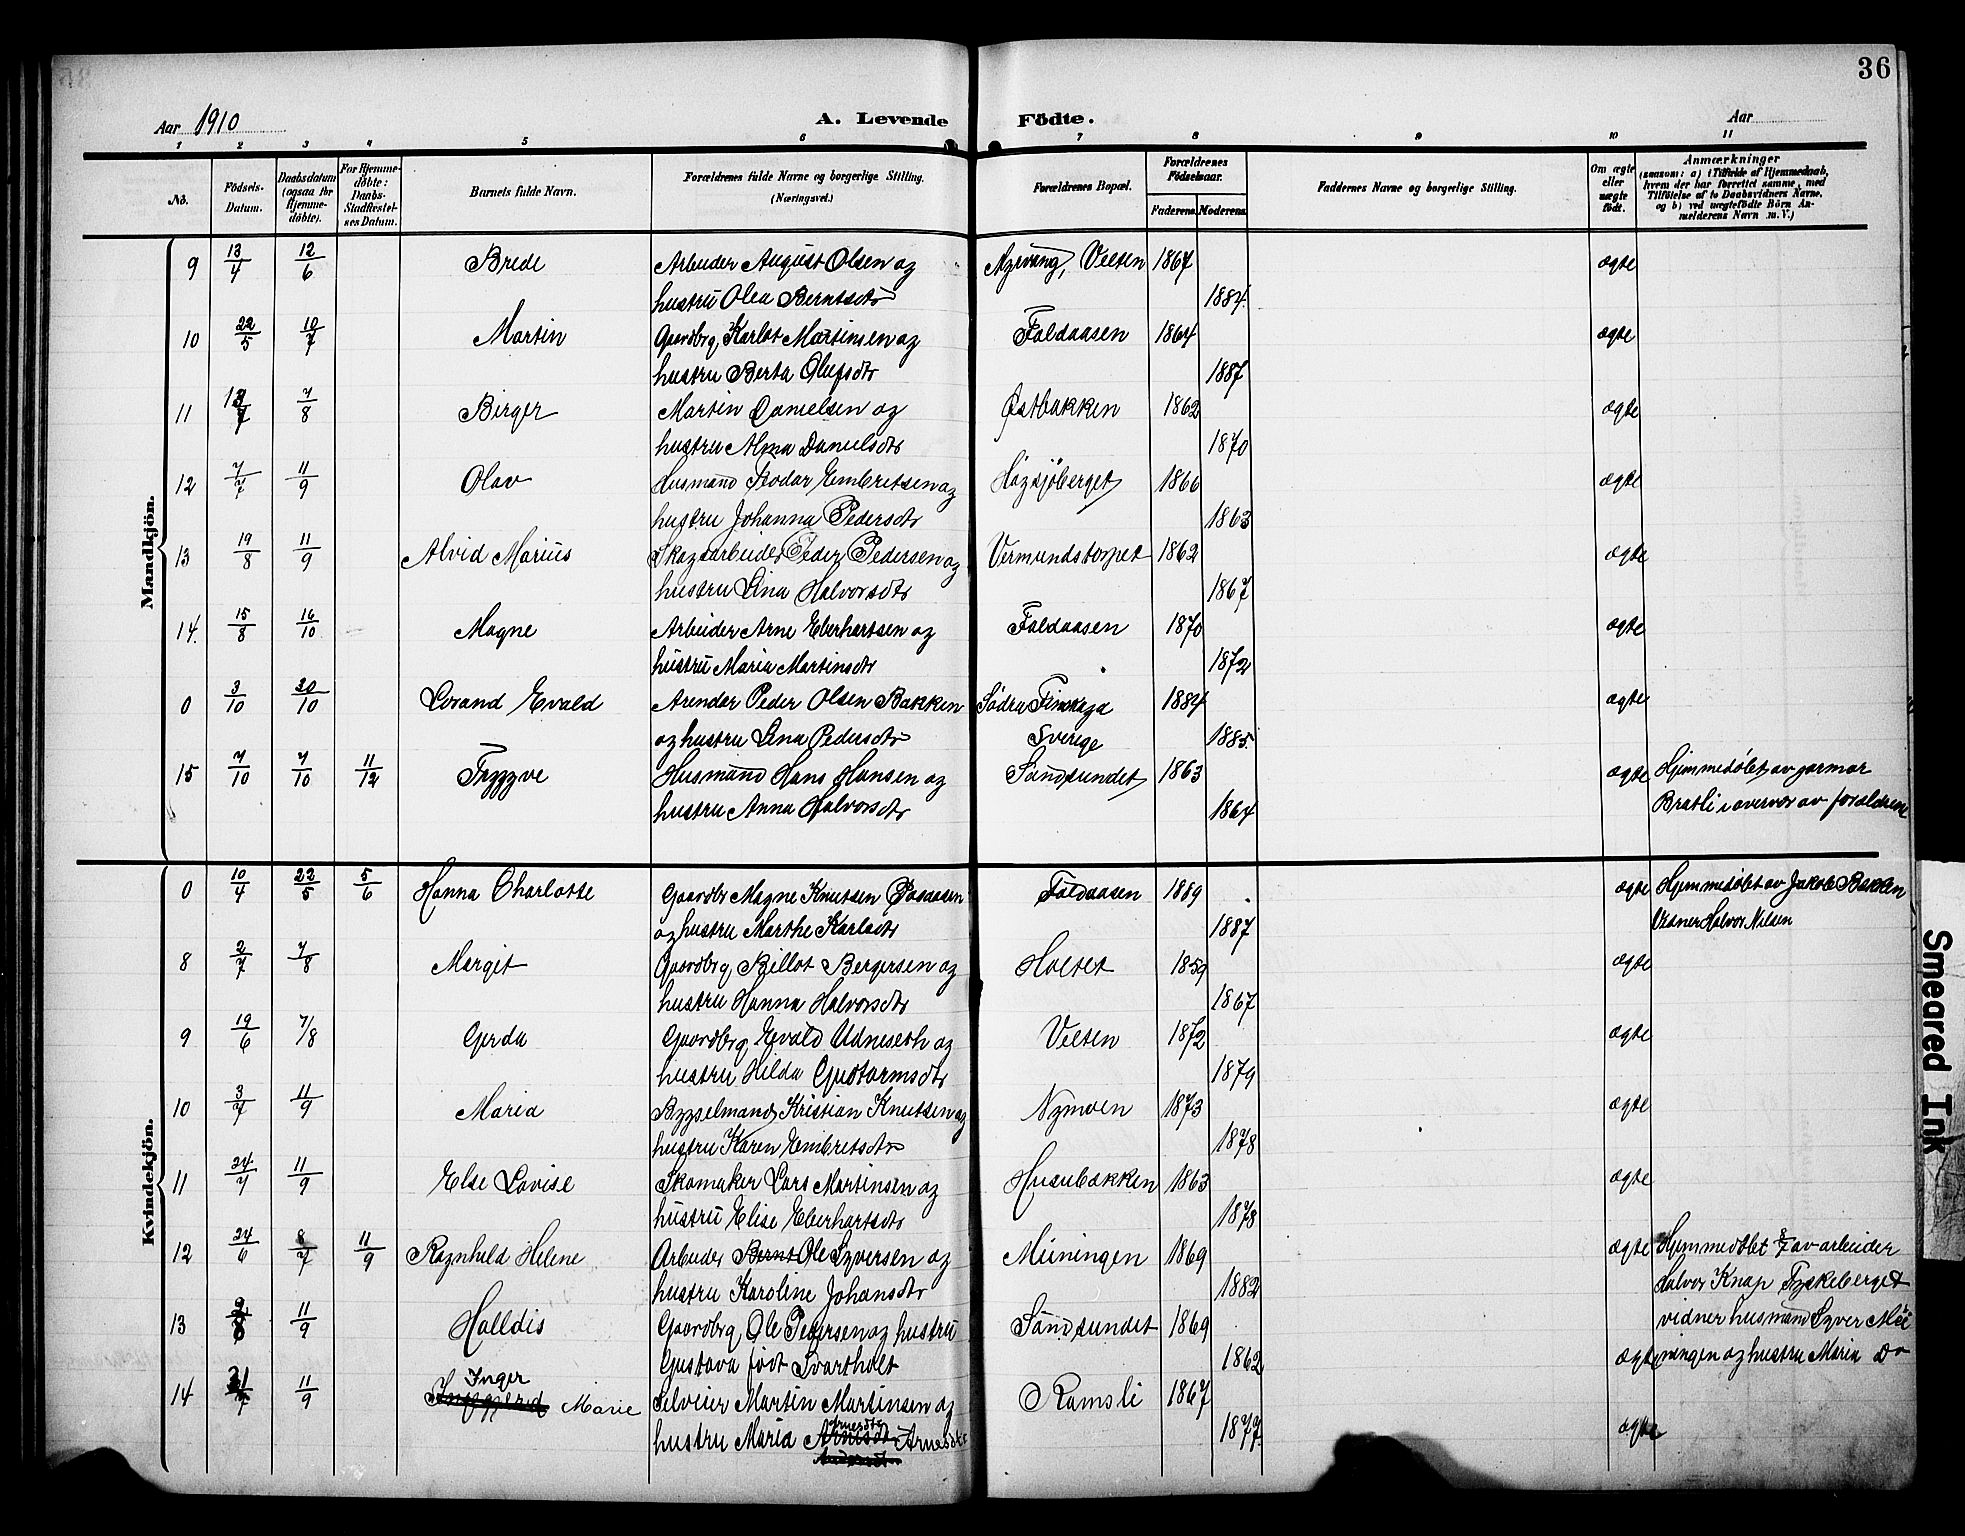 36
Aar 1910 A. Levende Födte. Aar
1 2 3 4 5 6 7 8 9 10 11
No. Födsels-Datum. Daabsdatum (ogsaa for Hjemme-döbte). For Hjemme-döbte: Daabs-Stadfæstel-ses Datum. Barnets fulde Navn. Forældrenes fulde Navne og borgerlige Stilling. (Næringsvei.) Forældrenes Bopæl. Forældrenes Födselsaar. Faderens. Moderens. Faddernes Navne og borgerlige Stilling. Om ægte eller uægte födt. Anmærkninger (saasom: a) i Tilfælde af Hjemmedaab, hvem der har forrettet samme, med Tilföielse af to Daabsvidners Navne, og b) ved uægtefödte Börn An-melderens Navn m. V.)
Mandkjön.
9 13/4 12/6 Brede Arbeider August Olsen og Nyvang, Velten 1867 ægte
hustru Olea Berntsdtr 1884.
10 22/5 10/7 Martin Gaardbrg. Karlot Martinsen og Faldaasen 1864 ægte
hustru Berta Olufsdtr 1887
11 7/8 Birger Martin Danielsen og Østbakken 1862 ægte
hustru Alma Danielsdtr 1870
12 7/7 11/9 Olav Husmand Embretsen og Høgsjøberget 1866 ægte
hustru Johanna Pedersdtr 1863
13 19/8 11/9 Alvid Marius Skogsarbeider Peder Pedersen og Vermundstorpet 1862 ægte
hustru Lina Halvorsdtr 1867
14. 15/8 16/10 Magne Arbeider Arne Eberhartsen og Faldaasen 1870 ægte
hustru Maria Martinsdtr 1872
0 3/10 30/10 Evald Arendar Peder Olsen Bakken Södra Finskoga 1884 ægte
og hustru Lina Pedersdtr Sverige 1885.
15 7/10 7/10 11/12 Trygve Husmand Hans Hansen og Sandsundet 1863 ægte Hjemmedøbt av
hustru Anna Halvorsdtr 1864 Bratli i overvær av forældrene
Kvindekjön.
0 10/4 22/5 5/6 Hanna Charlotte Gaardbr Magne Knutsen og Faldaasen 1889 ægte Hjemmedøbt av Jakob Bakken
og hustru Marthe Karlsdtr 1887 Vidner Halvor Nilsen
8 2/7 7/8 Margit Gaardbrg. Billot Bergersen og Holtet 1859 ægte
hustru Hanna Halvorsdtr 1867
9 19/6 7/8 Gerda Gaardbrg Evald Udneseth og Velten 1872 ægte
hustru Hilda Gustavsdtr 1879
10 3/7 11/9 Maria Bygselmand Kristian Knutsen og Nymoen 1873 ægte
hustru Karen Embretsdtr 1878
11 24/7 11/9 Else Lovise Skomaker Lars Martinsen og Husubakken 1863 ægte
hustru Elise Eberhartsdtr 1878
12 24/6 8/7 11/9 Ragnhild Helene Arbeider Bernt Ole Syversen og Meiningen 1869 ægte Hjemmedøbt 8/7 av arbeider
hustru Karoline Johansdtr 1882 Halvor Knap Tyskeberget
13 11/9 Halldis Gaardbrg. Ole Pedersen og hustru Sandsundet 1869 vidner husmand Syver Mei
Gustava født Svartholt 1862 ægte ningen og hustru Maria Do
14 11/9 Inger Marie Selveier Martin Martinsen og Ramsli 1867
hustru Maria Arnesdtr Arnesdtr 1877. ægte
Smeared Ink